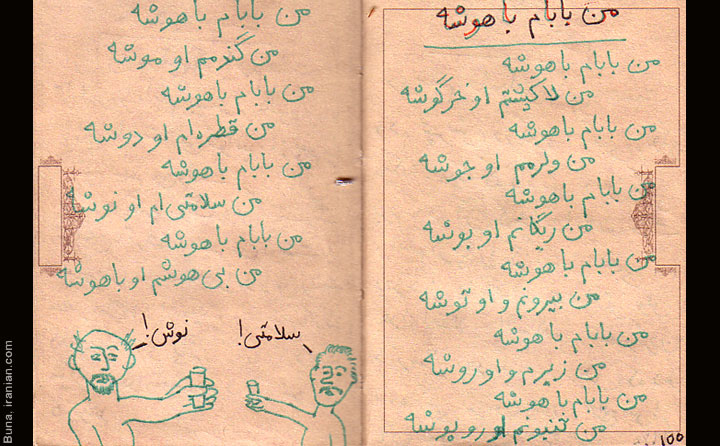 من بابام باهوشه
من بابام باهوشه
من لاکپشتم او خرگوشه
من بابام باهوشه
من ولرمم او جوشه
من بابام باهوشه
من ریگانم او بوشه
من بابام باهوشه
من بیرونم و او توشه
من بابام باهوشه
من زیرم و او روشه
من بابام باهوشه
من تنبونم او روپوشه
من بابام باهوشه
من گندمم او موشه
من بابام باهوشه
من قطره‌ام او دوشه
من بابام باهوشه
من سلامتی‌ام او نوشه
من بابام باهوشه
من بی هوشم او باهوشه
سلامتی!
نوش!
Buna, iranian.com